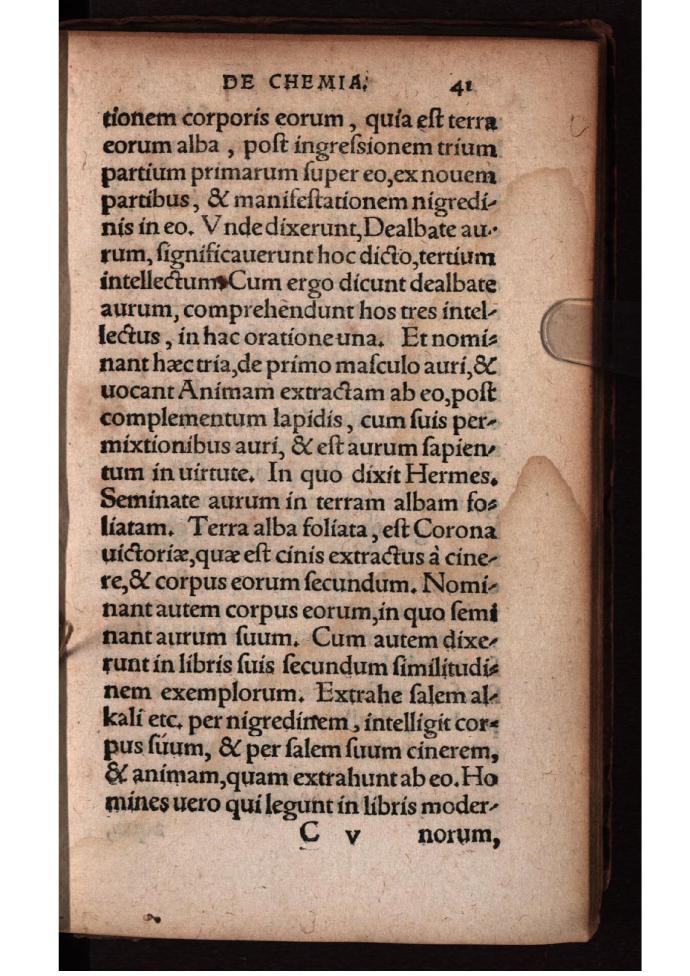 DE CHEMIA. 41
tionem corporis eorum, quia est terra
eorum alba, post ingressionem trium
partium primarum super eo, ex nouem
partibus, & manifestationem nigredi-
nis in eo. Vnde dixerunt, Dealbate au-
rum, significauerunt hoc dicto, tertium
intellectum. Cum ergo dicunt dealbate
aurum, comprehendunt hos tres intel-
lectus, in hac oratione una. Et nomi-
nant hæc tria, de primo masculo auri, &
uocant Animam extractam ab eo, post
complementum lapidis, cum suis per-
mixtionibus auri, & est aurum sapien-
tum in uirtute. In quo dixit Hermes.
Seminate aurum in terram albam fo-
liatam. Terra alba foliata, est Corona
uictoriæ, quæ est cinis extractus à cine-
re, & corpus eorum secundum. Nomi-
nant autem corpus eorum, in quo semi
nant aurum suum. Cum autem dixe-
runt in libris suis secundum similitudi-
nem exemplorum. Extrahe salem al-
kali etc. per nigredinem, intelligit cor-
pus suum, & per salem suum cinerem,
& animam, quam extrahunt ab eo. Ho
mines uero qui legunt in libris moder-
C v norum,